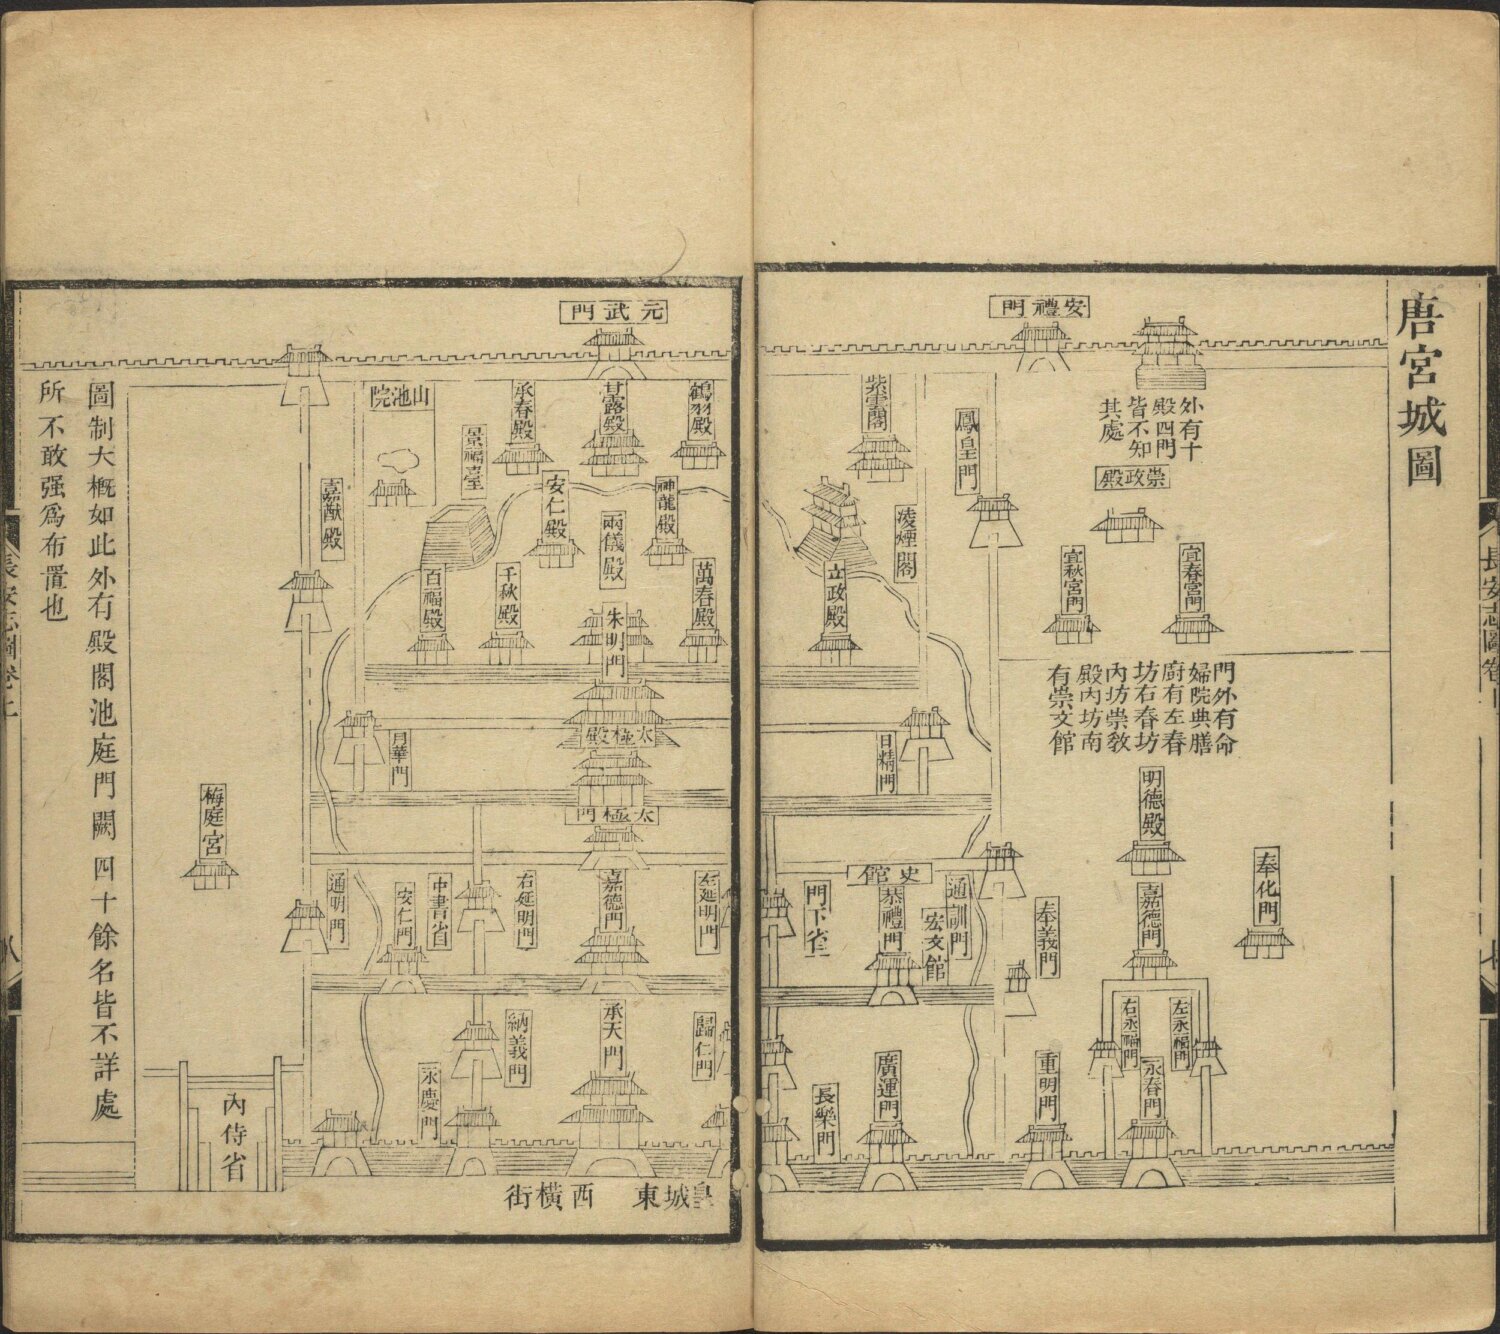 唐宮城圖
安禮門
外有十
殿四門
皆不知
其處
崇政殿
宜春宮門
宜秋宮門
鳳皇門
紫雲閣
凌煙閣
立政殿
門外有命
婦院典膳
廚有左春
坊右春坊
內坊崇教
殿內坊南
有崇文館
日精門
明德殿
奉化門
嘉德門
奉義門
通訓門
宏文館
史館
恭禮門
門下省
左永福門
右永福門
永春門
重明門
廣運門
長樂門
長安志圖卷上
七
元武門
鶴羽殿
甘露殿
承春殿
山池院
景福臺
神龍殿
安仁殿
兩儀殿
嘉猷殿
萬春殿
千秋殿
百福殿
朱明門
太極殿
月華門
太極門
左延明門
嘉德門
右延明門
中書省
安仁門
通明門
梅庭宮
歸仁門
承天門
納義門
永慶門
內侍省
皇城東西橫街
圖制大概如此外有殿閣池庭門闕四十餘名皆不詳處
所不敢强爲布置也
長安志圖卷上
八